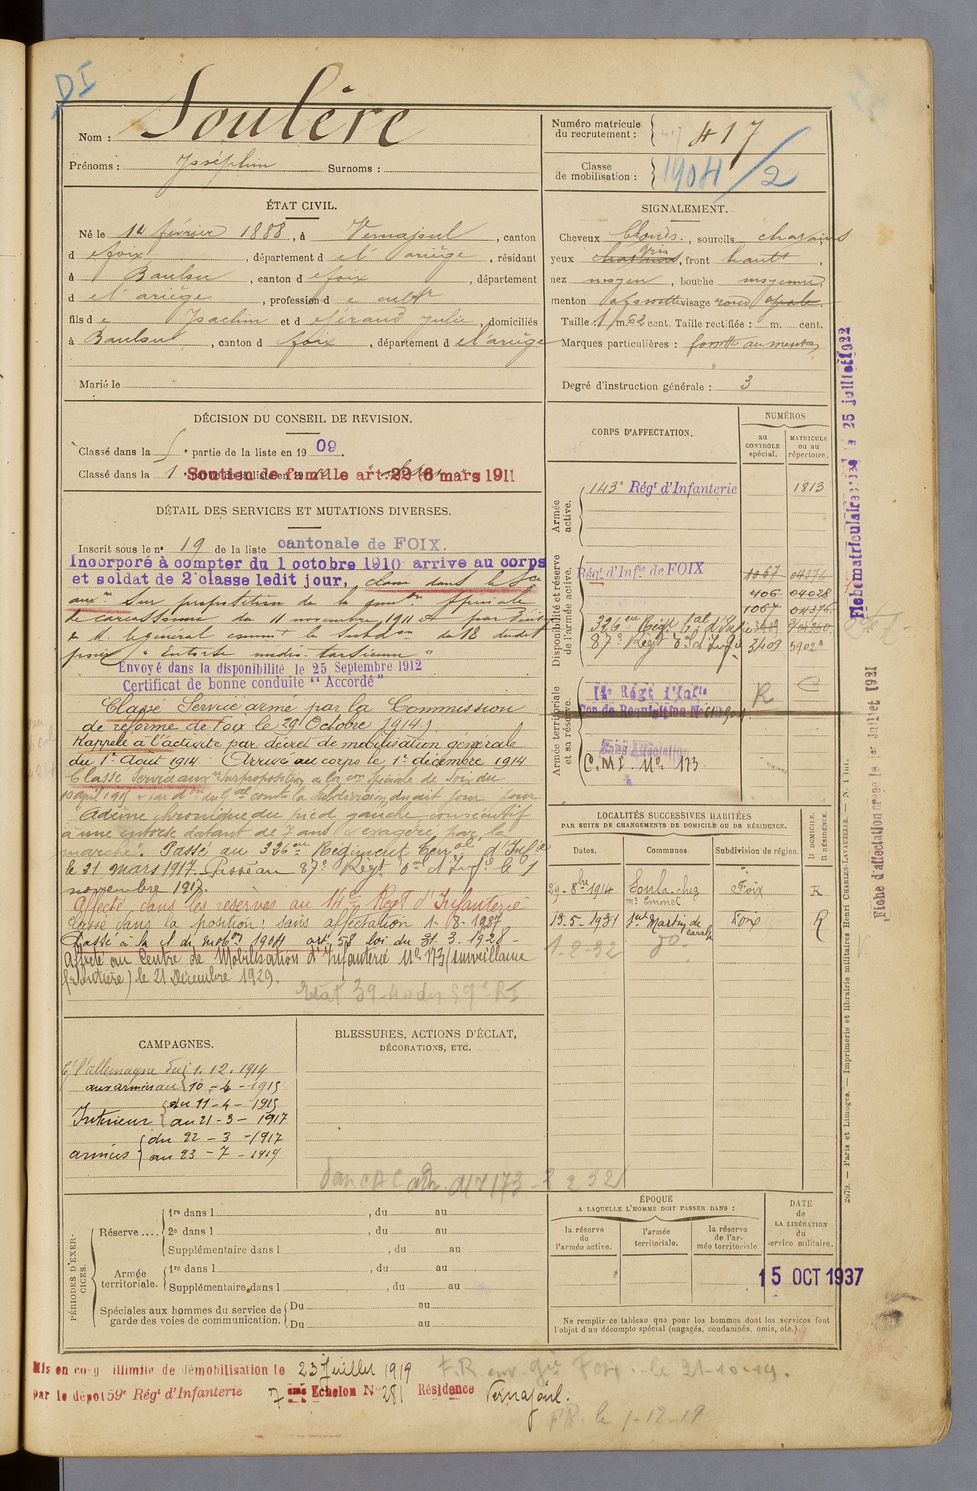 DI
Nom : Soulère
Prénoms : Joséphin Surnoms :
Numéro matricule du recrutement : 417 417
Classe de mobilisation : 1904/2
ÉTAT CIVIL.
Né le 14 février 1888, à Vernajoul, canton
d e foix, département d e l'ariège, résidant
à Baulou, canton d e foix, département
d e l'ariège, profession d e cultr
fils d e Joachim et d e féraud Julie, domiciliés
à Baulou, canton d e foix, département d e l'ariège
Marié le
SIGNALEMENT.
Cheveux blonds, sourcils chatains
yeux gris, front haut,
nez moyen, bouche moyenne
menton à fossette visage rond
Taille : 1 m. 62 cent. Taille rectifiée : m. cent.
Marques particulières : fossette au menton
Degré d'instruction générale : 3
DÉCISION DU CONSEIL DE REVISION.
Classé dans la 5e partie de la liste en 1909.
Classé dans la 1e partie de la liste en 19
Soutien de famille art. 22 6 mars 1911
DÉTAIL DES SERVICES ET MUTATIONS DIVERSES.
Inscrit sous le n° 19 de la liste cantonale de FOIX.
Incorporé à compter du 1 octobre 1910 arrive au corps
et soldat de 2e classe ledit jour, classé dans le Sce
auxre sur proposition de la comon spéciale
de carcassonne du 11 novembre 1911
et par
Mr le général commt la Subdon du 18 dudit
pour "Entorse médio-tarsienne"
Envoyé dans la disponibilité le 25 Septembre 1912
Certificat de bonne conduite "Accordé"
Classé Service armé par la Commission
de réforme de Foix le 29 Octobre 1914.
Rappelé à l'activité par décret de mobilisation générale
du 1er Août 1914. Arrivé au corps le 1er décembre 1914
Classé Service auxre sur proposition de la con spéciale de Foix du
10 avril 1915 & par don du Gal comt la Subdivision dudit jour pour
"Œdème chronique du pied gauche consécutif
à une entorse datant de 7 ans & exagéré par la
marche". Passé au 326me Régiment Terral d'Infie
le 31 mars 1917. Passé au 87e Régt Tal d'Infie le 1
novembre 1917.
Affecté dans les réserves au 14me Régt d'Infanterie
Classé dans la position : sans affectation 1-8-1927
Passé à la cl. de mobon 1904 art. 58 loi du 31.3.1928 -
Affecté au Centre de Mobilisation d'Infanterie No 173 (surveillance
frontière) le 21 Décembre 1929.
CORPS D'AFFECTATION.
NUMÉROS
au CONTROLE spécial.
MATRICULE ou au répertoire.
Armée active.
143e Régt d'Infanterie 1813
Disponibilité et réserve de l'armée active.
Régt d'Infie de FOIX 1067 04376
406 04028
1067 04376
326me Régt Tal d'Infie
87e Régt Tal d'Infie 3409 5902
Armée territoriale et sa réserve.
14e Régt d'Infie R
Con de Réquisition No
Sans Affectation
C.M.I. No 173
LOCALITÉS SUCCESSIVES HABITÉES
PAR SUITE DE CHANGEMENTS DE DOMICILE OU DE RÉSIDENCE.
Dates. Communes. Subdivision de région. D DOMICILE. R RÉSIDENCE.
29-8bre 1914 Soula chez Foix R
13-5-1931 St Martin de Caralp Foix R
1-2-32 do
CAMPAGNES.
C/ l'allemagne du 1.12.1914
aux armées au 10-4-1915
Intérieur du 11-4-1915
au 21-3-1917
armées du 22-3-1917
au 23-7-1919
BLESSURES, ACTIONS D'ÉCLAT,
DÉCORATIONS, ETC.
PÉRIODES D'EXERCICES.
Réserve.... 1re dans l , du au
2e dans l , du au
Supplémentaire dans l , du au
Armée territoriale. 1re dans l , du au
Supplémentaire dans l , du au
Spéciales aux hommes du service de garde des voies de communication. Du au
Du au
ÉPOQUE
A LAQUELLE L'HOMME DOIT PASSER DANS :
la réserve de l'armée active.
l'armée territoriale.
la réserve de l'armée territoriale.
DATE de LA LIBÉRATION du service militaire.
15 OCT 1937
Ne remplir ce tableau que pour les hommes dont les services font
l'objet d'un décompte spécial (engagés, condamnés, omis, etc.).
Mis en congé illimité de démobilisation le 23 Juillet 1919
par le dépôt 59e Régt d'Infanterie 7ème Echelon No 281 Résidence Vernajoul.
F.R. env. Gie Foix : le 21-10-19.
le 1-12-19
Fiche matriculaire le 25 juillet 1922
Fiche d'affectation créée le 1er Juillet 1921
2079. — Paris et Limoges. — Imprimerie et librairie militaires Henri CHARLES-LAVAUZELLE. — N. 1 int.